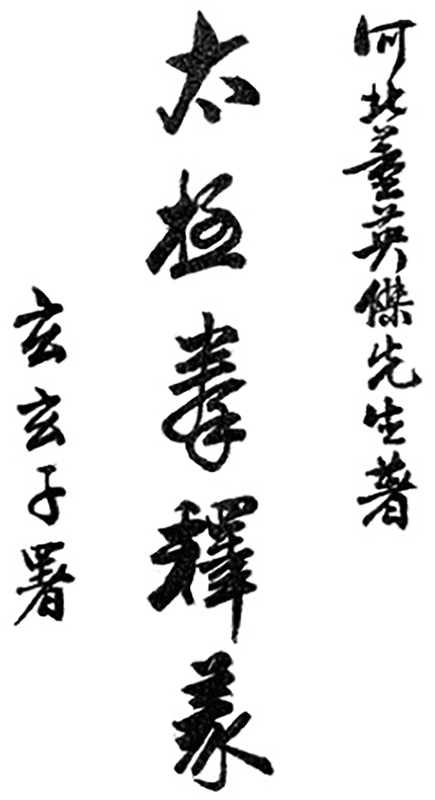 河北董英傑先生著
太極拳釋義
玄玄子署